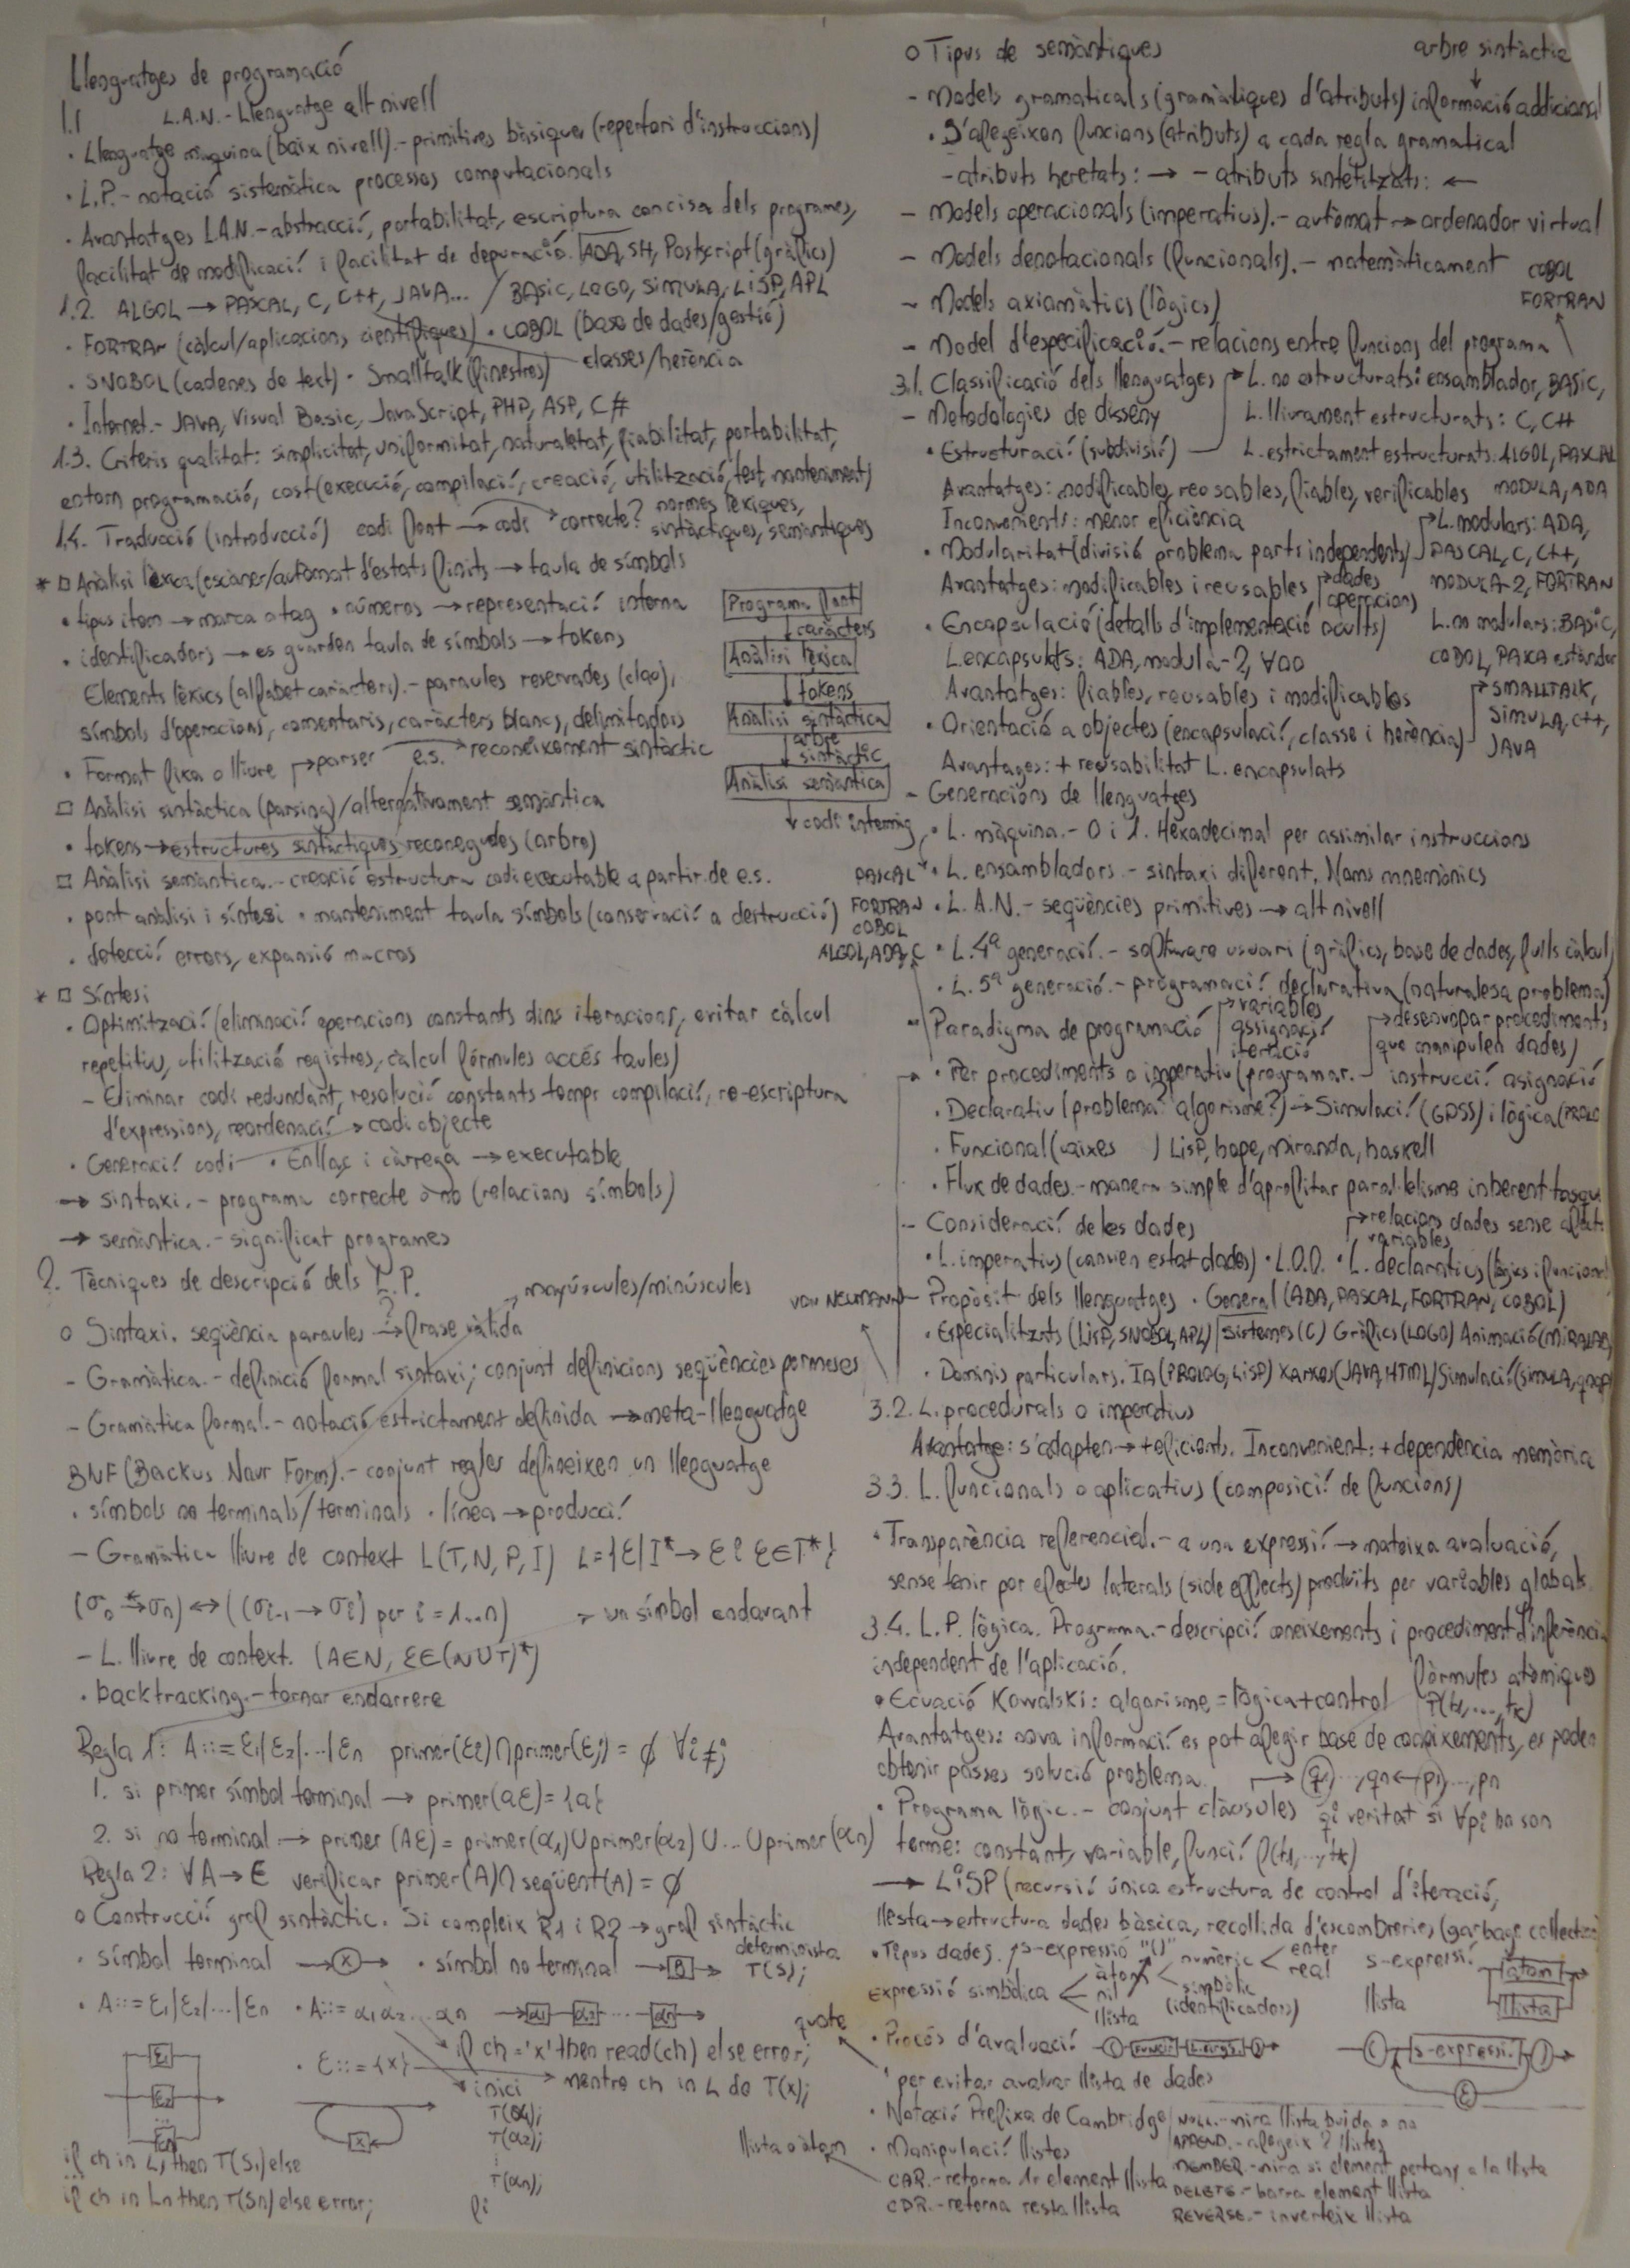 Llenguatges de programació
1.1 L.A.N.- Llenguatge alt nivell
· Llenguatge màquina (baix nivell).- primitives bàsiques (repertori d'instruccions)
· L.P.- notació sistemàtica processos computacionals
· Avantatges L.A.N.- abstracció, portabilitat, escriptura concisa dels programes,
facilitat de modificació i facilitat de depuració. ADA, SH, Postscript (gràfics)
1.2. ALGOL → PASCAL, C, C++, JAVA... / BASIC, LOGO, SIMULA, LISP, APL
· FORTRAN (càlcul/aplicacions científiques) · COBOL (base de dades/gestió)
· SNOBOL (cadenes de text) · Smalltalk (finestres) classes/herència
· Internet.- JAVA, Visual Basic, JavaScript, PHP, ASP, C#
1.3. Criteris qualitat: simplicitat, uniformitat, naturaletat, fiabilitat, portabilitat,
entorn programació, cost (execució, compilació, creació, utilització, test, manteniment)
1.4. Traducció (introducció) codi font → codi → correcte? normes lèxiques,
sintàctiques, semàntiques
* □ Anàlisi lèxica (escàner/autòmat d'estats finits → taula de símbols
· tipus item → marca o tag · números → representació interna
· identificadors → es guarden taula de símbols → tokens
Elements lèxics (alfabet caràcters).- paraules reservades (clau),
símbols d'operacions, comentaris, caràcters blancs, delimitadors
· Format fixa o lliure → parser e.s. → reconeixement sintàctic
□ Anàlisi sintàctica (parsing)/alternativament semàntica
· tokens → estructures sintàctiques reconegudes (arbre)
□ Anàlisi semàntica.- creació estructura codi executable a partir de e.s.
· pont anàlisi i síntesi · manteniment taula símbols (conservació o destrucció)
· detecció errors, expansió macros
Programa font
↓ caràcters
Anàlisi lèxica
↓ tokens
Anàlisi sintàctica
↓ arbre sintàctic
Anàlisi semàntica
↓ codi intermig
* □ Síntesi
· Optimització (eliminació operacions constants dins iteracions, evitar càlcul
repetitius, utilització registres, càlcul fórmules accés taules)
- Eliminar codi redundant, resolució constants temps compilació, re-escriptura
d'expressions, reordenació → codi objecte
· Generació codi · Enllaç i càrrega → executable
→ sintaxi.- programa correcte o no (relacions símbols)
→ semàntica.- significat programes
2. Tècniques de descripció dels L.P.
→ mayúscules/minúscules
o Sintaxi. seqüència paraules →? frase vàlida
- Gramàtica.- definició formal sintaxi; conjunt definicions seqüències permeses
- Gramàtica formal.- notació estrictament definida → meta-llenguatge
BNF (Backus Naur Form).- conjunt regles defineixen un llenguatge
· símbols no terminals/terminals · línea → producció
- Gramàtica lliure de context L(T,N,P,I) L={ℰ|I*→ ℰ i ℰ∈T*}
(σ₀ *→σn) ↔ ((σi-1 → σi) per i=1...n) → un símbol endavant
- L. lliure de context. (A∈N, ℰ∈(N∪T)*)
· backtracking.- tornar endarrere
Regla 1: A::= ℰ1|ℰ2|...|ℰn primer(ℰi)∩primer(ℰj) = ∅ ∀i≠j
1. si primer símbol terminal → primer(aℰ)={a}
2. si no terminal → primer (Aℰ) = primer(α1)∪primer(α2) ∪... ∪primer(αn)
Regla 2: ∀A→ ℰ verificar primer(A)∩següent(A) = ∅
o Construcció graf sintàctic. Si compleix R1 i R2 → graf sintàctic
determinista
· símbol terminal → (x) → · símbol no terminal → [B] → T(S);
· A::= ℰ1|ℰ2|...|ℰn · A::= α1 α2... αn → [α1] [α2] ... [αn] →
ℰ1
ℰ2
...
ℰn
· ℰ::={x}
x
if ch='x' then read(ch) else error;
mentre ch in L do T(x);
inici
T(α1);
T(α2);
⋮
T(αn);
fi
if ch in L1 then T(S1) else
...
if ch in Ln then T(Sn) else error;
o Tipus de semàntiques arbre sintàctic
- Models gramaticals (gramàtiques d'atributs) informació addicional
· S'afegeixen funcions (atributs) a cada regla gramatical
- atributs heretats: → - atributs sintetitzats: ←
- Models operacionals (imperatius).- autòmat → ordenador virtual
- Models denotacionals (funcionals).- matemàticament
- Models axiomàtics (lògics)
COBOL
FORTRAN
- Model d'especificació.- relacions entre funcions del programa
3.1. Classificació dels llenguatges → L. no estructurats: ensamblador, BASIC,
- Metodologies de disseny L. lliurament estructurats: C, C++
· Estructuració (subdivisió) L. estrictament estructurats: ALGOL, PASCAL
Avantatges: modificables, reusables, fiables, verificables MODULA, ADA
Inconvenients: menor eficiència → L. modulars: ADA,
· Modularitat (divisió problema parts independents) PASCAL, C, C++,
Avantatges: modificables i reusables → dades MODULA-2, FORTRAN
operacions
· Encapsulació (detalls d'implementació ocults) L. no modulars: BASIC,
L. encapsulats: ADA, modula-2, ∀OO COBOL, estàndar
Avantatges: fiables, reusables i modificables → SMALLTALK,
· Orientació a objectes (encapsulació, classe i herència) SIMULA, C++,
JAVA
Avantages: + reusabilitat L. encapsulats
- Generacions de llenguatges
· L. màquina.- 0 i 1. Hexadecimal per assimilar instruccions
· L. ensambladors.- sintaxi diferent. Noms mnemònics
PASCAL
FORTRAN
COBOL
ALGOL, ADA, C
· L.A.N.- seqüències primitives → alt nivell
· L. 4ª generació.- software usuari (gràfics, base de dades, fulls càlcul)
· L. 5ª generació.- programació declarativa (naturalesa problema)
- Paradigma de programació → variables
assignació
iteració
→ desenvopar procediments
que manipulen dades)
· Per procediments o imperatiu (programar.- instrucció asignació
· Declaratiu (problema? algorisme?) → Simulació (GPSS) i lògica (PROLO
· Funcional (caixes ) LISP, hope, miranda, haskell
· Flux de dades.- manera simple d'aprofitar paral·lelisme inherent tasqu
- Consideració de les dades
→ relacions dades sense
variables
· L. imperatius (canvien estat dades) · L.O.O. · L. declaratius (lògics i funcional
VON NEUMANN
- Propòsit dels llenguatges · General (ADA, PASCAL, FORTRAN, COBOL)
· Especialitzats (LISP, SNOBOL, APL) | Sistemes (C) Gràfics (LOGO) Animació
· Dominis particulars. IA (PROLOG, LISP) Xarxes (JAVA, HTML) / Simulació (SIMULA,
3.2. L. procedurals o imperatius
Avantatge: s'adapten → + eficients. Inconvenient: + dependència memòria
3.3. L. funcionals o aplicatius (composició de funcions)
· Transparència referencial.- a una expressió → mateixa avaluació,
sense tenir por efectes laterals (side effects) produïts per variables globals
3.4. L. P. lògica. Programa.- descripció coneixements i procediment d'inferència
independent de l'aplicació.
fórmules atòmiques
P(t1,...,tk)
· Ecuació Kowalski: algorisme = lògica + control
Avantatges: nova informació es pot afegir base de coneixements, es poden
obtenir passes solució problema. → q1,...,qn ← p1,...,pn
· Programa lògic.- conjunt clàusules qi veritat si ∀pi ho son
terme: constant, variable, funció f(t1,...,tk)
→ LISP (recursió única estructura de control d'iteració,
llesta → estructura dades bàsica, recollida d'escombreries (garbage collection
· Tipus dades. s-expressió "()"
Expressió simbòlica < àtom nil llista
numèric < enter real
simbòlic (identificadors)
s-expressió
àtom
llista
llista
( s-expressió )
ℰ
quote
· Procés d'avaluació ( Funció L. args. )
per evitar avaluar llista de dades
· Notació Prefixa de Cambridge
· Manipulació llistes
llista o àtom
CAR.- retorna 1r element llista
CDR.- retorna resta llista
NULL.- mira llista buida o no
APPEND.- afegeix 2 llistes
MEMBER.- mira si element pertany a la llista
DELETE.- borra element llista
REVERSE.- inverteix llista